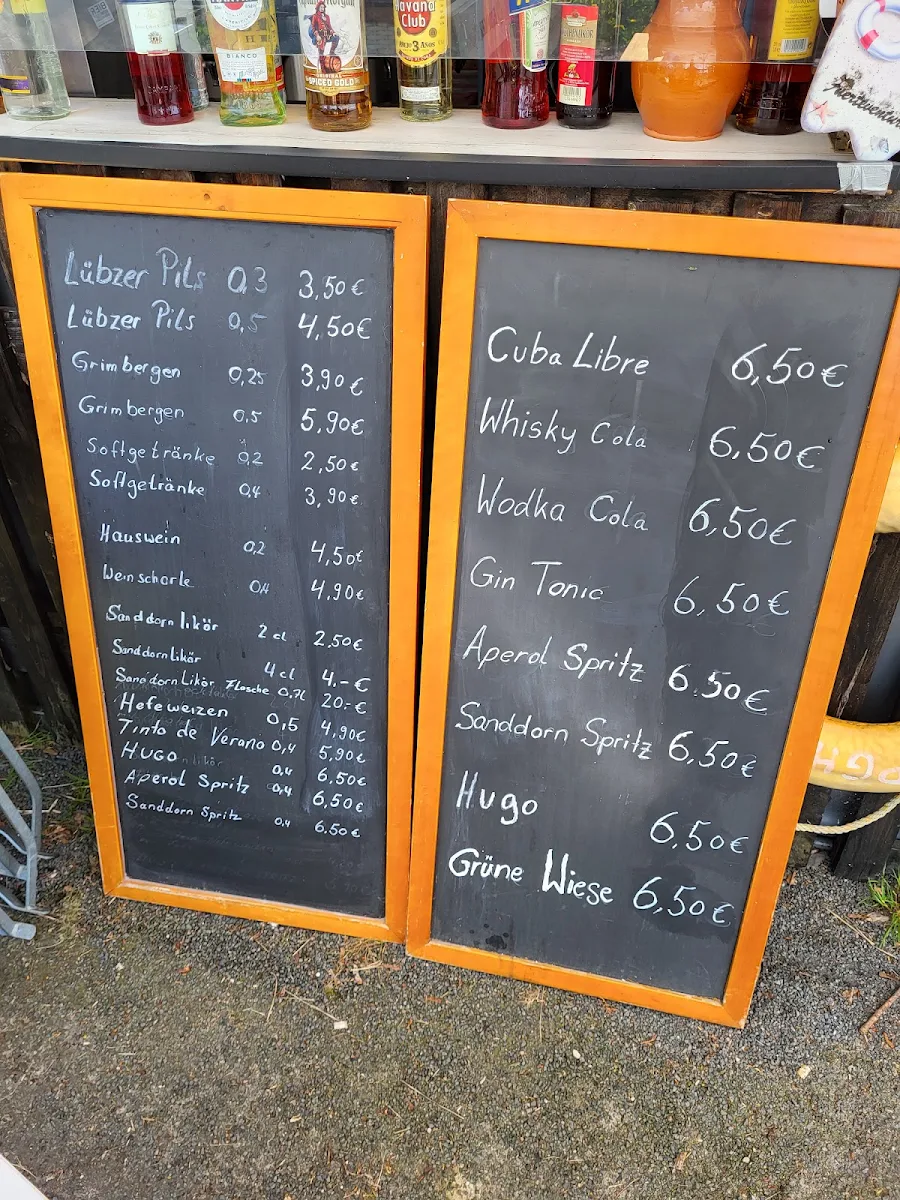 BIANCO
Captain Morgan
SPICED GOLD
Havana
Club
3
Lübzer Pils 0,3 3,50€
Lübzer Pils 0,5 4,50€
Grimbergen 0,25 3,90€
Grimbergen 0,5 5,90€
Softgetränke 0,2 2,50€
Softgetränke 0,4 3,90€
Hauswein 0,2 4,50€
Weinschorle 0,4 4,90€
Sanddornlikör 2 cl 2,50€
Sanddornlikör 4 cl 4.-€
Sanddornlikör Flasche 0,7l 20-€
Hefeweizen 0,5 4,90€
Tinto de Verano 0,4 5,90€
HUGO 0,4 6,50€
Aperol Spritz 0,4 6,50€
Sanddorn Spritz 0,4 6.50€
Cuba Libre 6,50€
Whisky Cola 6,50€
Wodka Cola 6,50€
Gin Tonic 6,50€
Aperol Spritz 6.50€
Sanddorn Spritz 6,50€
Hugo 6,50€
Grüne Wiese 6,50€